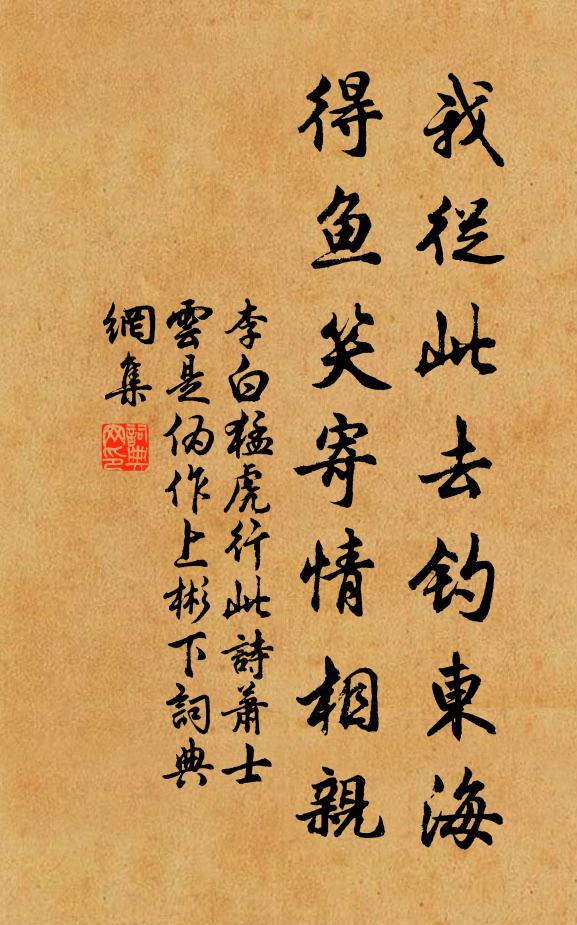 我從此去釣東海
得鱼笑寄情相親
李白猛虎行此詩蕭士
雲是偽作上彬下詞典
網集
詞典網印